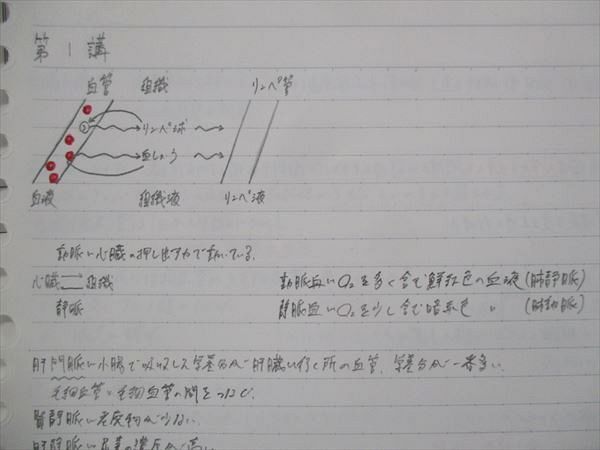 第1講
血管 組織 リンパ管
リンパ球
血しょう
血液 組織液 リンパ液
動脈い心臓の押し出す力で動いている.
心臓 組織 動脈血いO₂を多く含む鮮紅色の血液(肺静脈)
静脈 静脈血いO₂を少し含む暗赤色 〃 (肺動脈)
肝門脈い小腸で吸収した栄養分が肝臓い行く所の血管. 栄養分が一番多い.
毛細血管と毛細血管の間をつなぐ.
腎静脈い老廃物が少ない.
肝静脈い尿素の濃度が高い